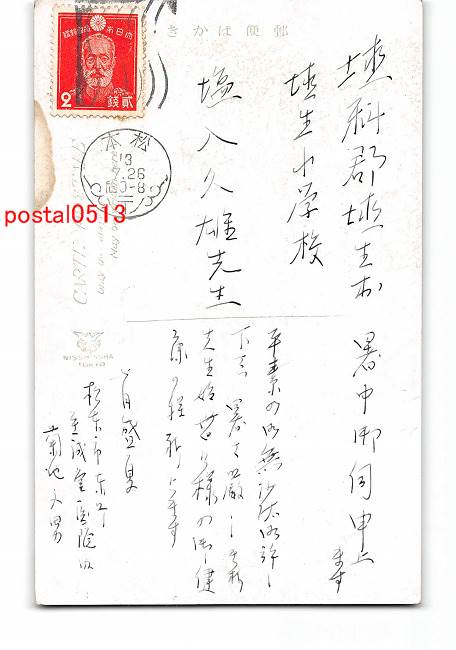 郵便はがき
大日本帝國郵便
2
貳
錢
松本
13
7.26
0-8
CARTE POSTALE
postal0513
NISSHINSHA
TOKYO
埴科郡埴生村
埴生小学校
塩入久雄先生
暑中御伺申上
ます
平素の御無沙汰御許し
下さい 暑さ厳しき折
先生始め皆々様の御健
康の程祈ります
盛夏
松本市東町
至誠堂医院内
菊池